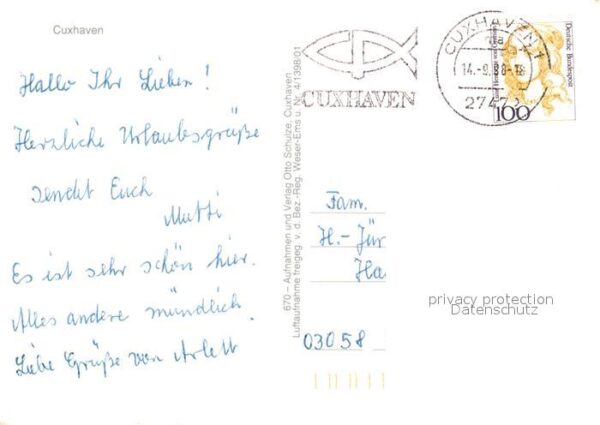 Cuxhaven
Hallo Ihr Lieben!
Herzliche Urlaubsgrüße
sendet Euch
Mutti
Es ist sehr schön hier.
Alles andere mündlich
Liebe Grüße von Arlett
670 – Aufnahmen und Verlag Otto Schulze, Cuxhaven
Luftaufnahme freigeg. v. d. Bez.-Reg. Weser-Ems u. Nr. 4/1398/01
CUXHAVEN
CUXHAVEN 1
14.-9.98-18
27472
Deutsche Bundespost
100
Fam.
H.-Jür
Ha
03058
privacy protection
Datenschutz